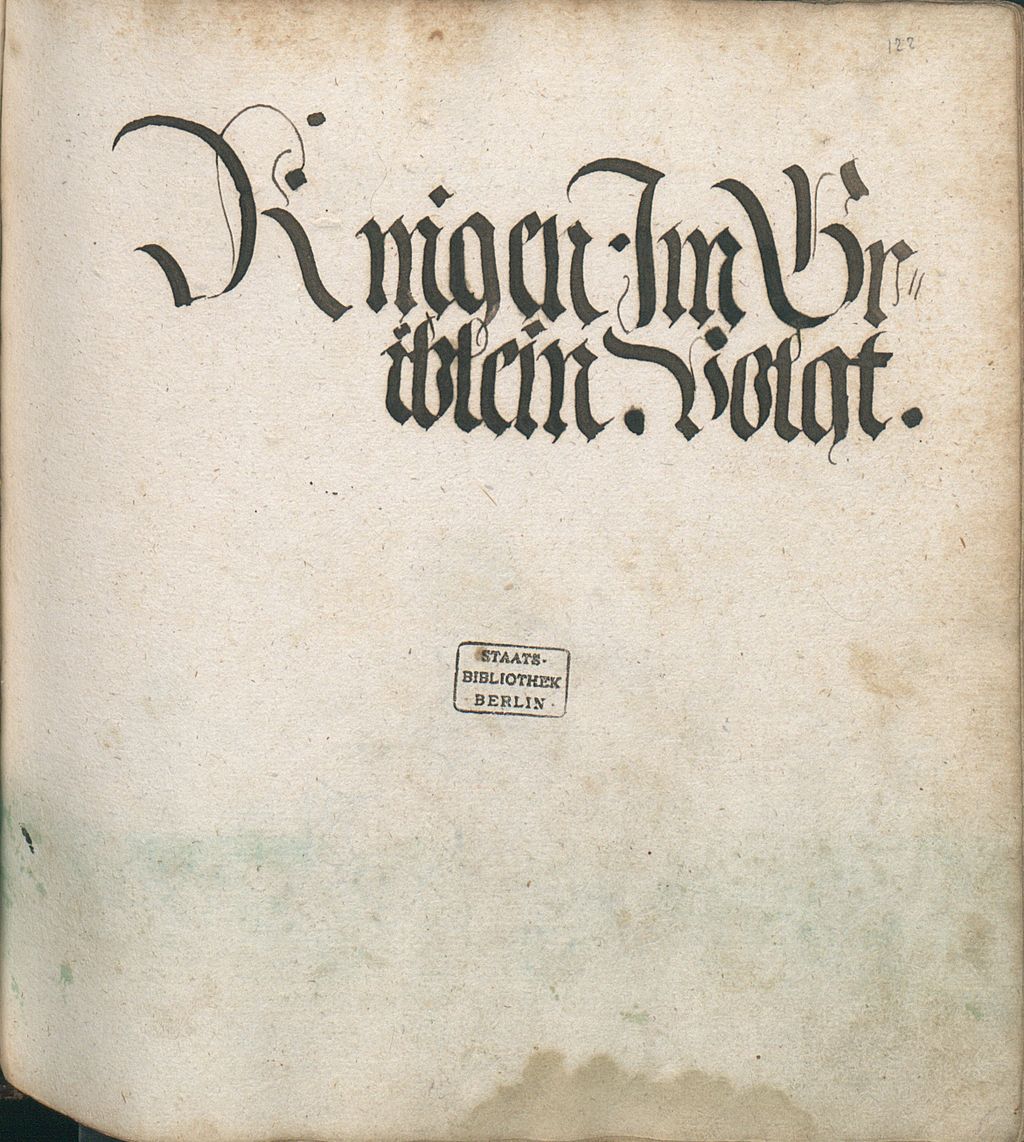 122
Ringen · Im Gr〃
iblein . Volgt .
STAATS-
BIBLIOTHEK
· BERLIN ·